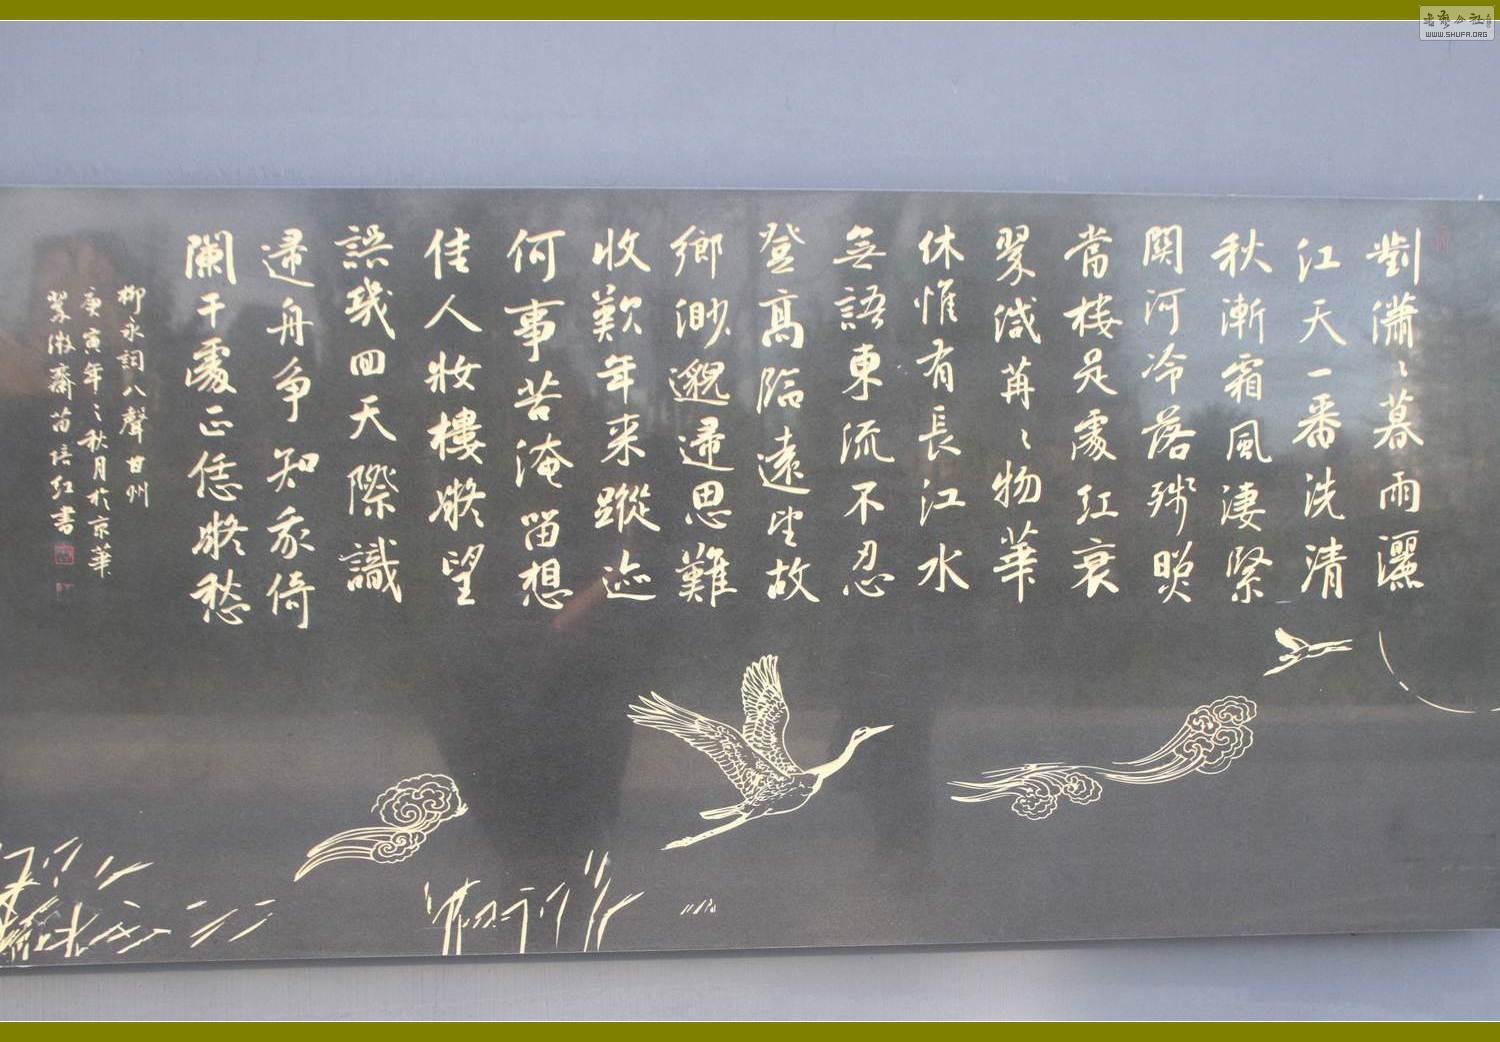 對瀟〻暮雨灑
江天一番洗清
秋漸霜風淒緊
関河冷落殘照
當樓是處紅衰
翠減苒〻物華
休惟有長江水
無語東流不忍
登高臨遠望故
鄉渺邈歸思難
收歎年來蹤迹
何事苦淹留想
佳人妝樓凝望
誤幾回天際識
歸舟爭知我倚
闌干處正恁凝愁
柳永詞八聲甘州
庚寅年〻秋月於京華
翠微齋苗培紅書
WWW.SHUFA.ORG